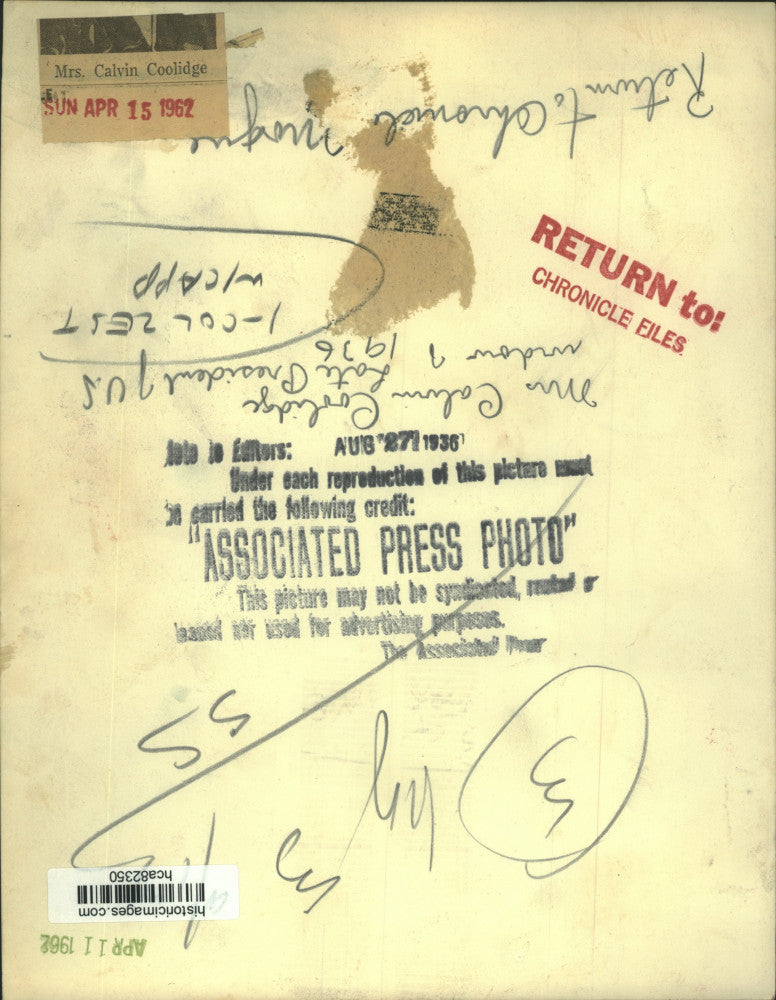 Mrs. Calvin Coolidge
SUN APR 15 1962
Return to Chronicle
Morgue
RETURN to:
CHRONICLE FILES
1-COL ZEST
W/CAPP
Mrs Calvin Coolidge
widow of
Late President of U.S
1936
Note to Editors: AUG 27 1936
Under each reproduction of this picture must
be carried the following credit:
"ASSOCIATED PRESS PHOTO"
This picture may not be syndicated, rented or
leased nor used for advertising purposes.
The Associated Press
55
3
3
historicimages.com
hca82350
APR 11 1962